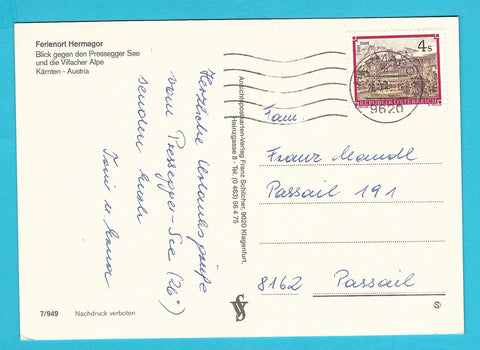 Ferienort Hermagor
Blick gegen den Pressegger See
und die Villacher Alpe
Kärnten - Austria
Herzliche Urlaubsgrüße
vom Pressegger-See (26°)
senden Euch
Toni u. Anna
Ansichtspostkarten-Verlag Franz Schilcher, 9020 Klagenfurt,
Heinzgasse 8 · Tel. (0 463) 56 4 75
4 S
REPUBLIK ÖSTERREICH
9620
Fam.
Franz Mandl
Passail 191
8162 Passail
7/949 Nachdruck verboten
S